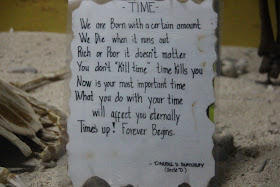 - TIME -
We are Born with a certain amount
We Die when it runs out
Rich or Poor it doesn't matter
You don't "Kill time" time Kills you
Now is your most important time
What you do with your time
will affect you eternally
Time's up! Forever Begins.